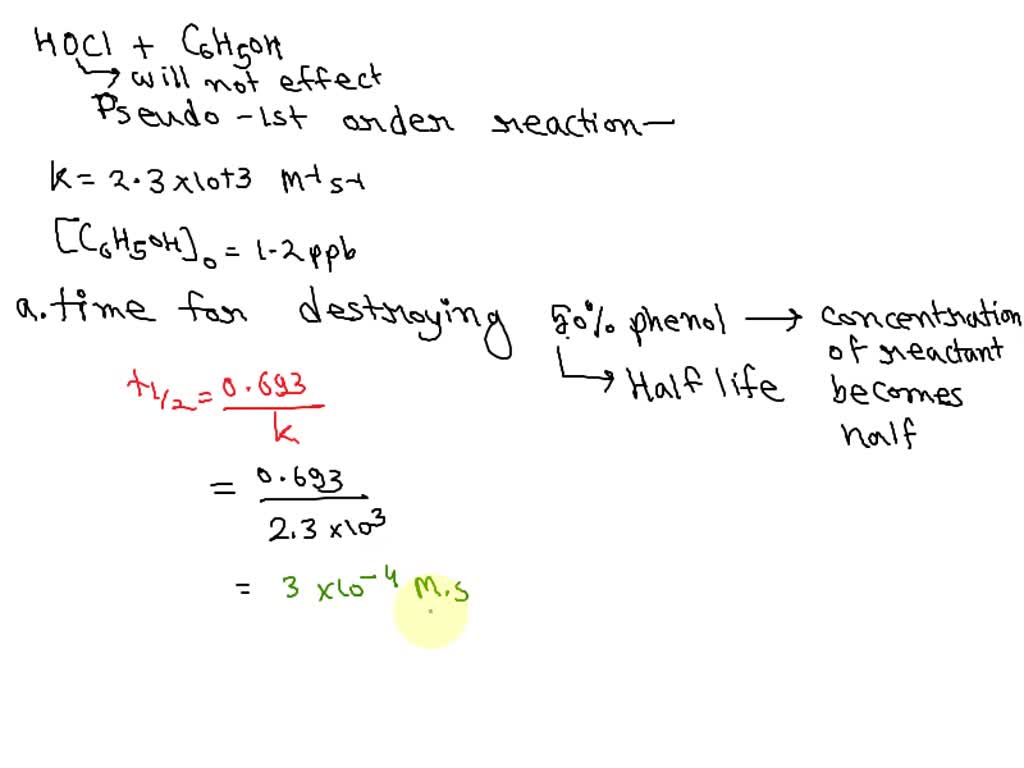 HOCl + C6H5OH
→ will not effect
Pseudo -1st order reaction—
k = 2.3 x10+3 M-1 s-1
[C6H5OH]0 = 1-2 ppb
a. time for destroying 50% phenol → concentration
of reactant
↳ Half life becomes
half
t1/2 = 0.693
k
= 0.693
2.3 x10^3
= 3 x10^-4 M.s